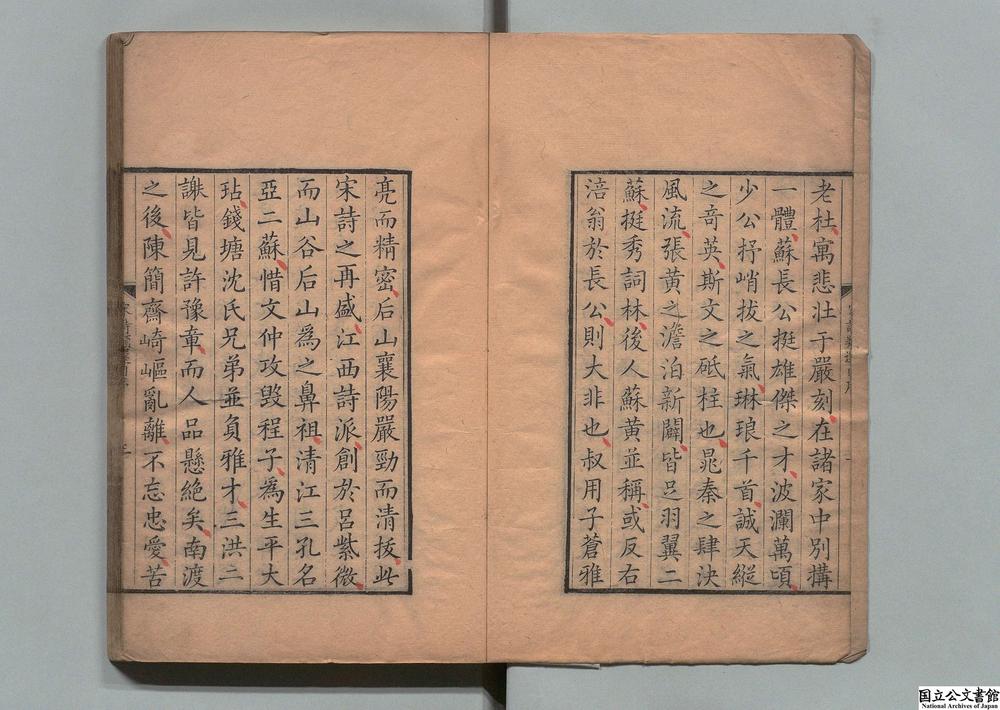 老杜寓悲壯于嚴刻在諸家中別搆
一體蘇長公挺雄傑之才波瀾萬頃
少公抒峭拔之氣琳琅千首誠天縱
之竒英斯文之砥柱也晁秦之肆決
風流張黃之澹泊新闢皆足羽翼二
蘇挺秀詞林後人蘇黃並稱或反右
涪翁於長公則大非也叔用子蒼雅
亮而精密后山襄陽嚴勁而清拔此
宋詩之再盛江西詩派創於呂紫微
而山谷后山為之鼻祖清江三孔名
亞二蘇惜文仲攻毀程子為生平大
玷錢塘沈氏兄弟並負雅才三洪二
謝皆見許豫章而人品懸絕矣南渡
之後陳簡齋崎嶇亂離不忘忠愛苦
国立公文書館
National Archives of Japan